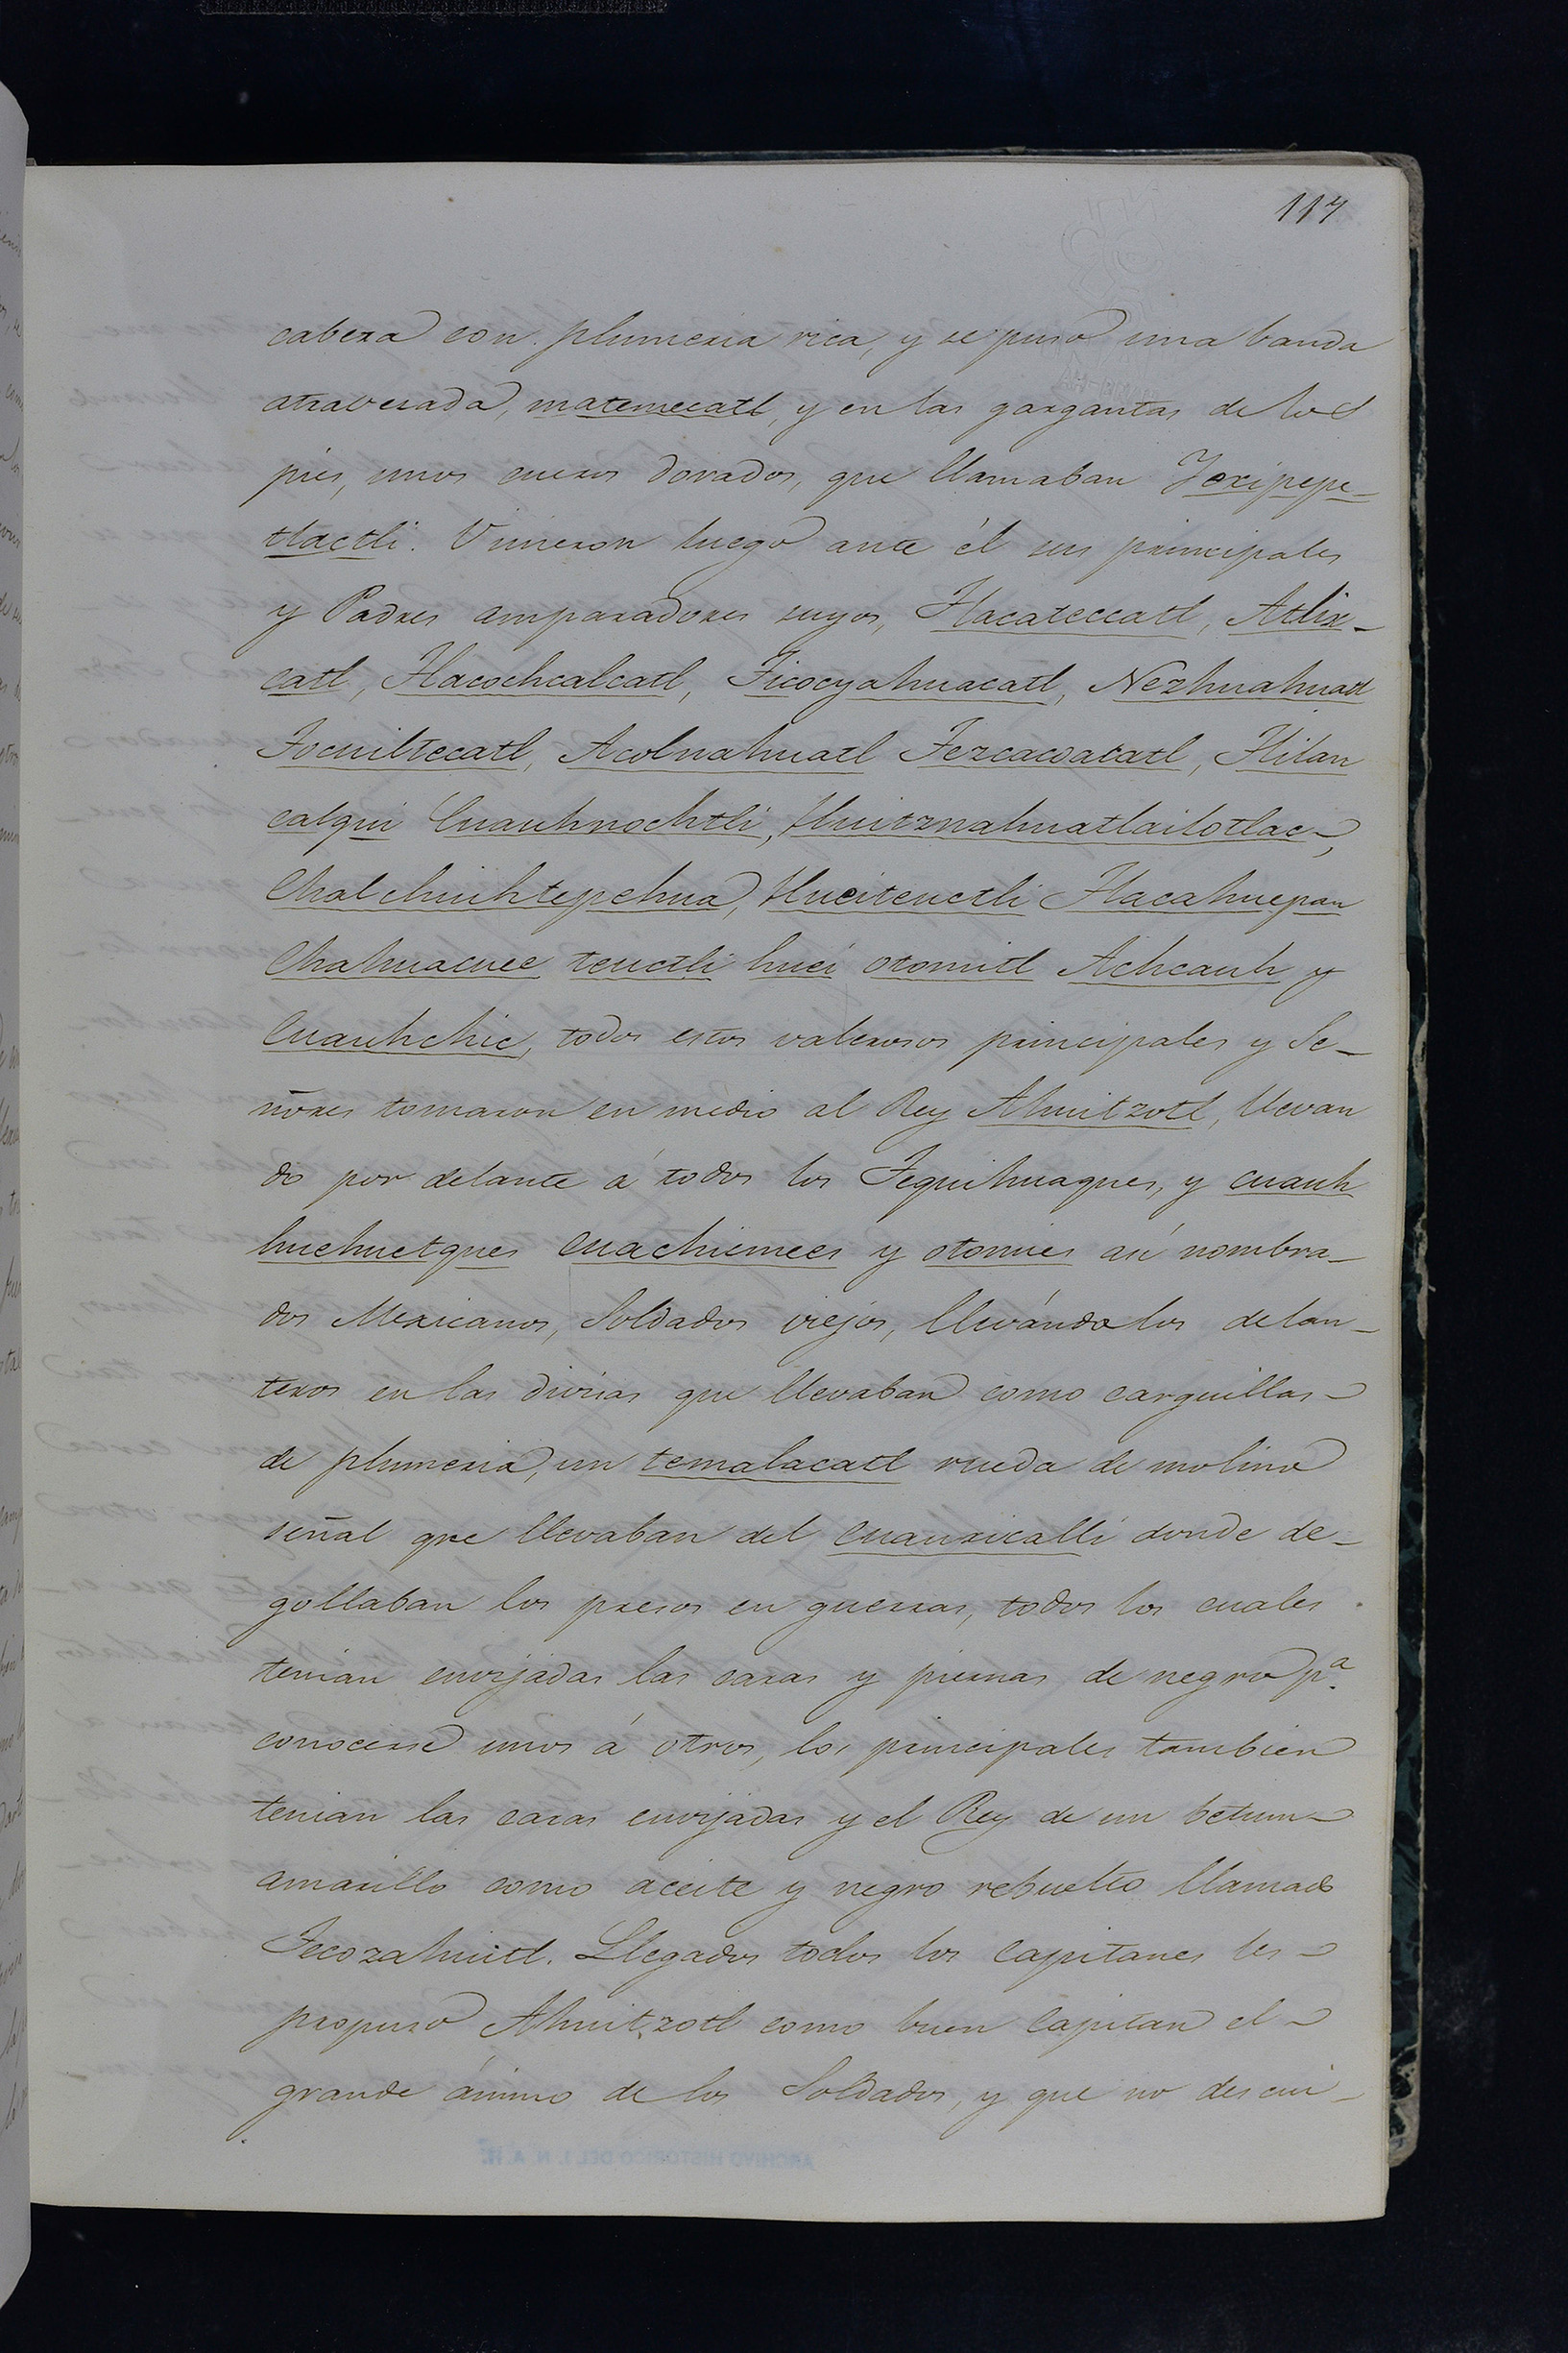 117
cabeza con plumeria rica, y se puso una banda
atravesada, matemecatl, y en las gargantas de los
pies, unos cueros dorados, que llamaban Yexipepe-
tlactli. Vinieron luego ante él sus principales
y Padres amparadores suyos, Tlacateccatl, Atlix-
catl, Tlacochcalcatl, Ticocyahuacatl, Nezhuahuatl
Tocuiltecatl, Acolnahuatl Tezcacoacatl, Tlilan
calqui Cuauhnochtli, Huitznahuatlailotlac,
Chalchiuhtepehua, Hueiteuctli Tlacahuepan
Chahuacuee teuctli huei otomitl Achcauh y
Cuauhchic, todos estos valerosos principales y Se-
ñores tomaron en medio al Rey Ahuitzotl, llevan
do por delante á todos los Tequihuaques, y cuauh
huehuetques cuachicmees y otomies así nombra-
dos Mexicanos, Soldados viejos, llevándolos delan-
teros en las divisas que llevaban como carguillas
de plumeria, un temalacatl rueda de molino
señal que llevaban del cuauxicalli donde de-
gollaban los presos en guerras, todos los cuales
tenian envijadas las caras y piernas de negro pª.
conocerse unos á otros, los principales tambien
tenian las caras envijadas y el Rey de un betum
amarillo como aceite y negro rebuelto llamado
Tecozahuitl. Llegados todos los Capitanes les
propuso Ahuitzotl como buen Capitan el
grande ánimo de los Soldados, y que no descui-
ARCHIVO HISTORICO DEL I. N. A. H.